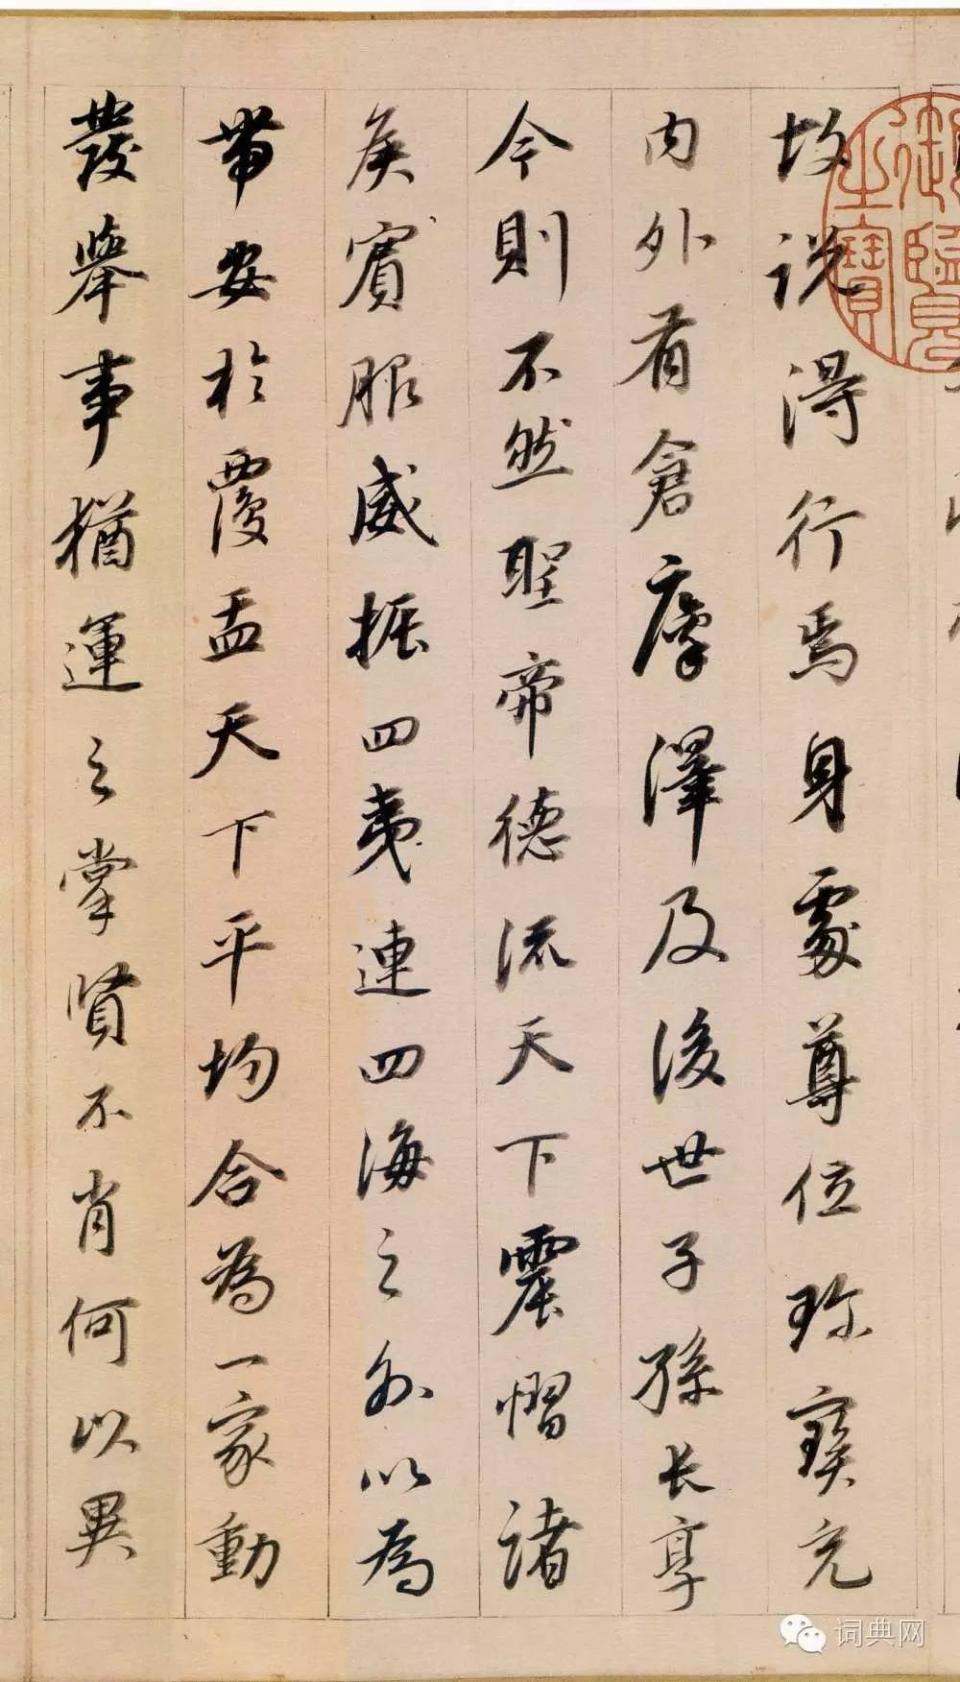 故說得行焉身處尊位珎寳充
內外有倉廩澤及後世子孫長享
今則不然聖帝德流天下震慴諸
矦賓服威振四夷連四海之外以為
帶安扵覆盂天下平均合為一家動
發舉事猶運之掌賢不肖何以異
御覽之寶
词典网